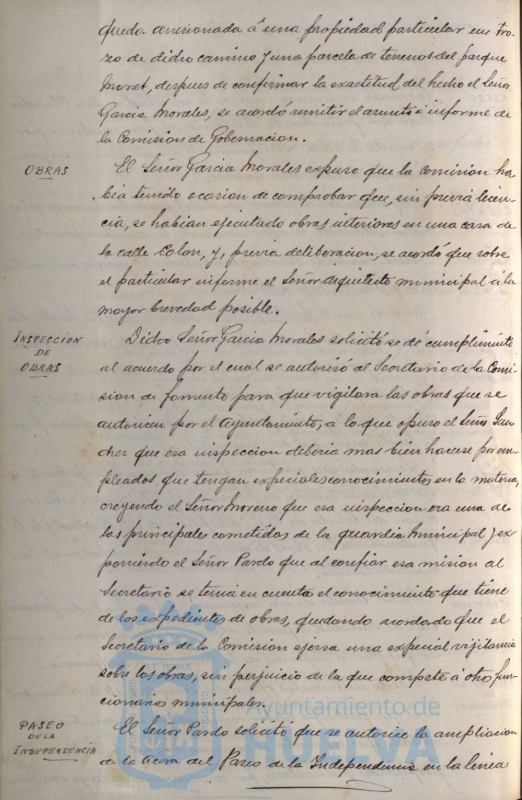 quedo anexionada á una propiedad particular un tro-
zo de dicho camino y una parcela de terrenos del parque
Moret, despues de confirmar la exactitud del hecho el Señor
Garcia Morales, se acordó remitir el asunto á informe de
la Comision de Gobernacion.
OBRAS
El Señor Garcia Morales expuso que la comision ha-
bia tenido ocasion de comprobar que, sin previa licen-
cia, se habian ejecutado obras interiores en una casa de
la calle Colon, y, previa deliberacion, se acordó que sobre
el particular informe el Señor Arquitecto municipal á la
mayor brevedad posible.
INSPECCION
DE
OBRAS
Dicho Señor Garcia Morales solicitó se dé cumplimiento
al acuerdo por el cual se autorizó al Secretario de la Comi-
sion de Fomento para que vigilara las obras que se
autoricen por el Ayuntamiento, a lo que opuso el Señor San-
chez que esa inspeccion deberia mas bien hacerse por em-
pleados que tengan especiales conocimientos en la materia,
creyendo el Señor Moreno que esa inspeccion era una de
los principales cometidos de la guardia municipal y ex-
poniendo el Señor Pardo que al confiar esa mision al
Secretario se tenia en cuenta el conocimiento que tiene
de los expedientes de obras, quedando acordado que el
Secretario de la Comision ejerza una especial vigilancia
sobre las obras, sin perjuicio de la que compete á otros fun-
cionarios municipales.
PASEO
DE LA
INDEPENDENCIA
El Señor Pardo solicitó que se autorice la ampliacion
de la acera del Paseo de la Independencia en la linea
Ayuntamiento de
HUELVA